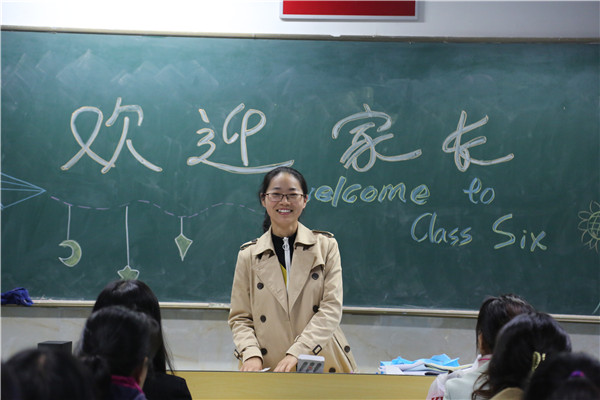 欢迎家长
welcome to
Class Six